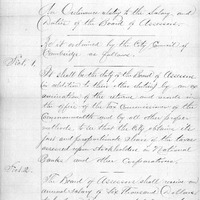 An Ordinance relating to the Salary and
Duties of the Board of Assessors.
Be it ordained by the City Council of
Cambridge as follows.
Sect. 1.
It shall be the duty of the Board of Assessors
in addition to their other duties, by an ex-
amination of the returns and records in
the office of the Tax Commissioner of the
Commonwealth and by all other proper
methods, to see that the City obtains its
full and proportionate share of the taxes
assessed upon Stockholders in National
Banks and other Corporations.
Sect. 2.
The Board of Assessors shall receive an
annual salary of Six Thousand Dollars